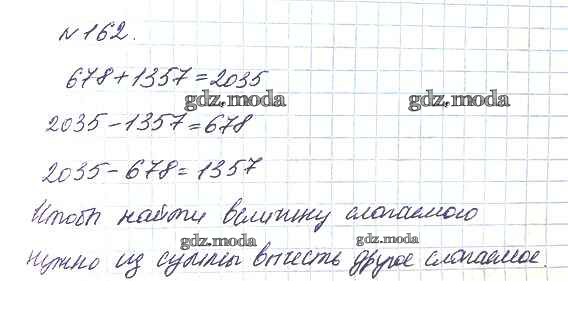 №162.
678+1357=2035
gdz.moda gdz.moda
2035-1357=678
2035-678=1357
Чтобы найти величину слагаемого
gdz.moda gdz.moda
нужно из суммы вычесть другое слагаемое.